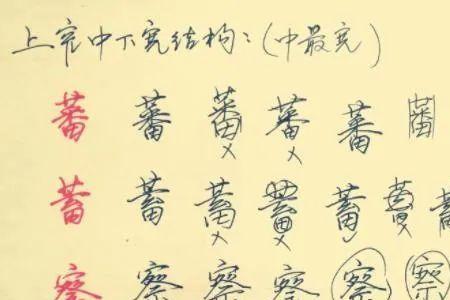 上窄中下宽结构：（中最宽）
蕃 蕃 蕃 蕃 蕃 蕃
蓄 蓄 蓄 蓄 蓄 蓄 蓄
察 察 察 察 察 察